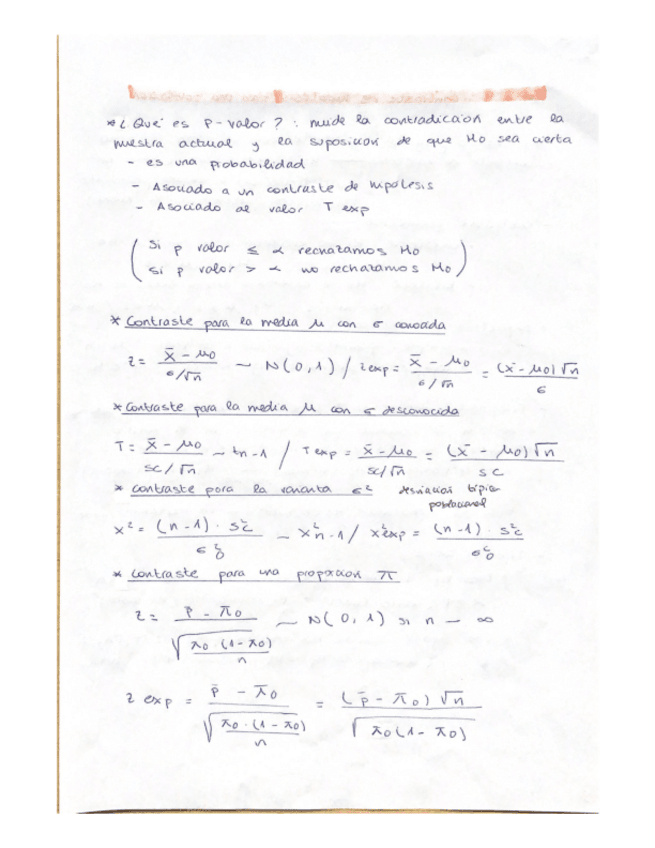 * ¿ Que es P-valor ? : mide la contradicaion entre la
muestra actual y la suposicion de que Ho sea cierta
- es una probabilidad
- Asociado a un contraste de hipotesis
- Asociado al valor T exp
( Si p valor ≤ α rechazamos Ho
si p valor > α no rechazamos Ho )
* Contraste para la media μ con σ conocida
z = (x̄ - μ0) / (σ/√n) ~ N(0,1) / z exp = (x̄ - μ0) / (σ/√n) = (x̄ - μ0)√n / σ
* Contraste para la media μ con σ desconocida
T = (x̄ - μ0) / (sc/√n) ~ tn-1 / T exp = (x̄ - μ0) / (sc/√n) = (x̄ - μ0)√n / sc
* contraste para la varianza σ² desviacion tipica
poblacional
x² = (n-1) · sc² / σ0² ~ x²n-1 / x²exp = (n-1) · sc² / σ0²
* Contraste para una proporcion π
z = (P - π0) / √(π0 · (1-π0) / n) ~ N(0,1) si n → ∞
z exp = (p̄ - π0) / √(π0 · (1-π0) / n) = (p̄ - π0)√n / √(π0(1-π0))